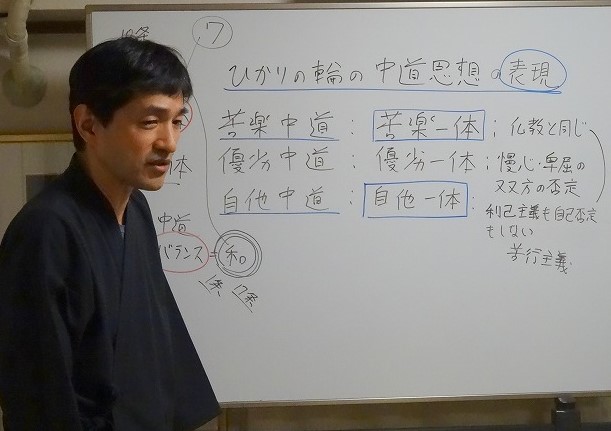 ワ
ひかりの輪の中道思想の表現
苦楽中道: 苦楽一体; 仏教と同じ
優劣中道: 優劣一体; 慢心・卑屈の
又双方の否定
自他中道: 自他一体:
利己主義も自己否定
もしない
苦行主義
体
中道
バランス=和